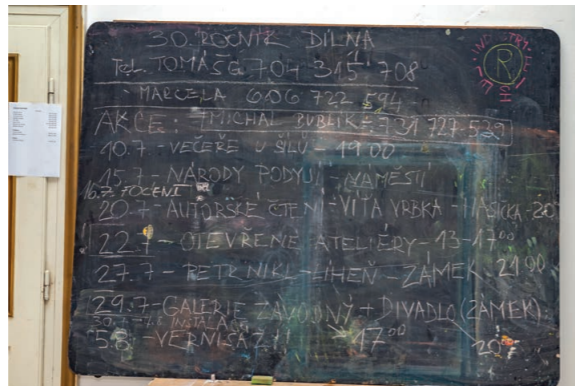 30. ROČNÍK DÍLNA
TEL. TOMÁŠ 704 315 708
MARCELA 606 722 594
AKCE: MICHAL PUBLIK: 731 727 529
10.7 - VEČEŘE U ŠÍLŮ - 19 00
15.7 - NÁRODY PODYJÍ NÁMĚSTÍ
16.7. FOCENÍ
20.7 - AUTORSKÉ ČTENÍ - VÍŤA VRBKA - HASIČKA - 20
22.7 - OTEVŘENÉ ATELIÉRY - 13-17 00
27.7 - PETR NIKL - LÍHEŇ - ZÁMEK 21 00
29.7 - GALERIE ZÁVODNÝ + DIVADLO (ZÁMEK)
INSTALACE
5.8 - VERNISÁŽ!! 17 00
20 00
R